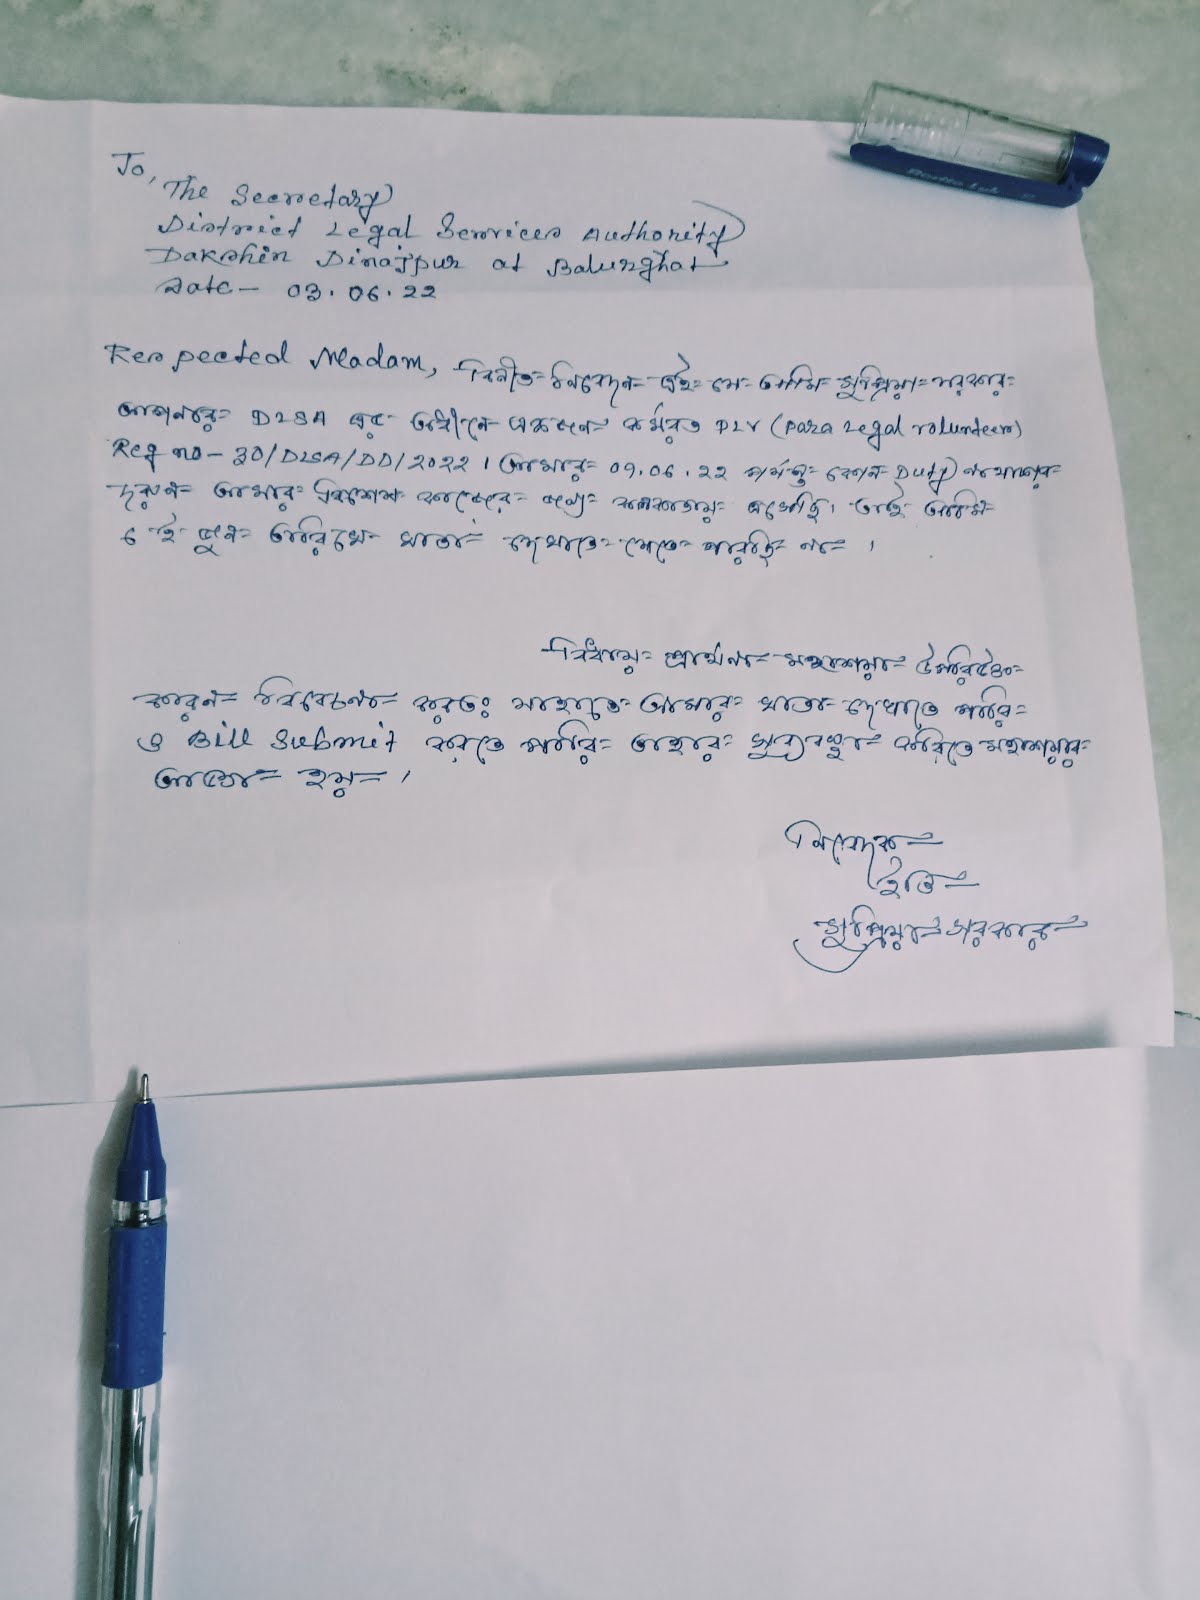 To,
The Secretary
District Legal Services Authority
Dakshin Dinajpur at Balurghat
Date - 03.06.22
Respected Madam, বিনীত নিবেদন এই যে আমি সুপ্রিয়া সরকার
আপনার DLSA এর অধীনে একজন কর্মরত PLV (Para Legal Volunteer)
Reg no - 30/DLSA/DD/2022। আমার 09.06.22 পর্যন্ত কোন Duty না থাকার
দরুন আমার বিশেষ কাজের জন্য কলকাতায় এসেছি। তাই আমি
৬ ই জুন তারিখে খাতা দেখাতে যেতে পারছি না।
বিধায় প্রার্থনা মহাশয়া উপরিউক্ত
কারন বিবেচনা করতঃ যাহাতে আমার খাতা দেখাতে পারি
ও Bill Submit করতে পারি তাহার সুব্যবস্থা করিতে মহাশয়ার
আজ্ঞা হয়।
নিবেদক
ইতি
সুপ্রিয়া সরকার